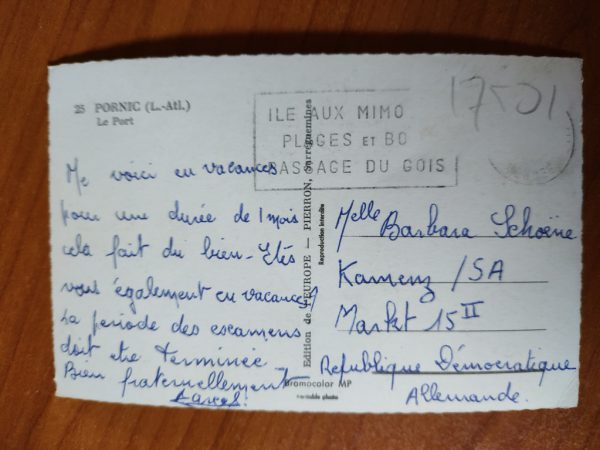 25 PORNIC (L.-Atl.)
Le Port
ILE AUX MIMO
PLAGES ET BO
PASSAGE DU GOIS
17501
Me voici en vacances
pour une durée de 1 mois
cela fait du bien - Etés
vous également en vacances
La periode des examens
doit etre terminée
Bien fraternellement
Edition de l'EUROPE — PIERRON, Sarreguemines
Reproduction interdite
Bromocolor MP
véritable photo
Melle Barbara Schoene
Kamenz / SA
Markt 15 II
Republique Démocratique
Allemande.